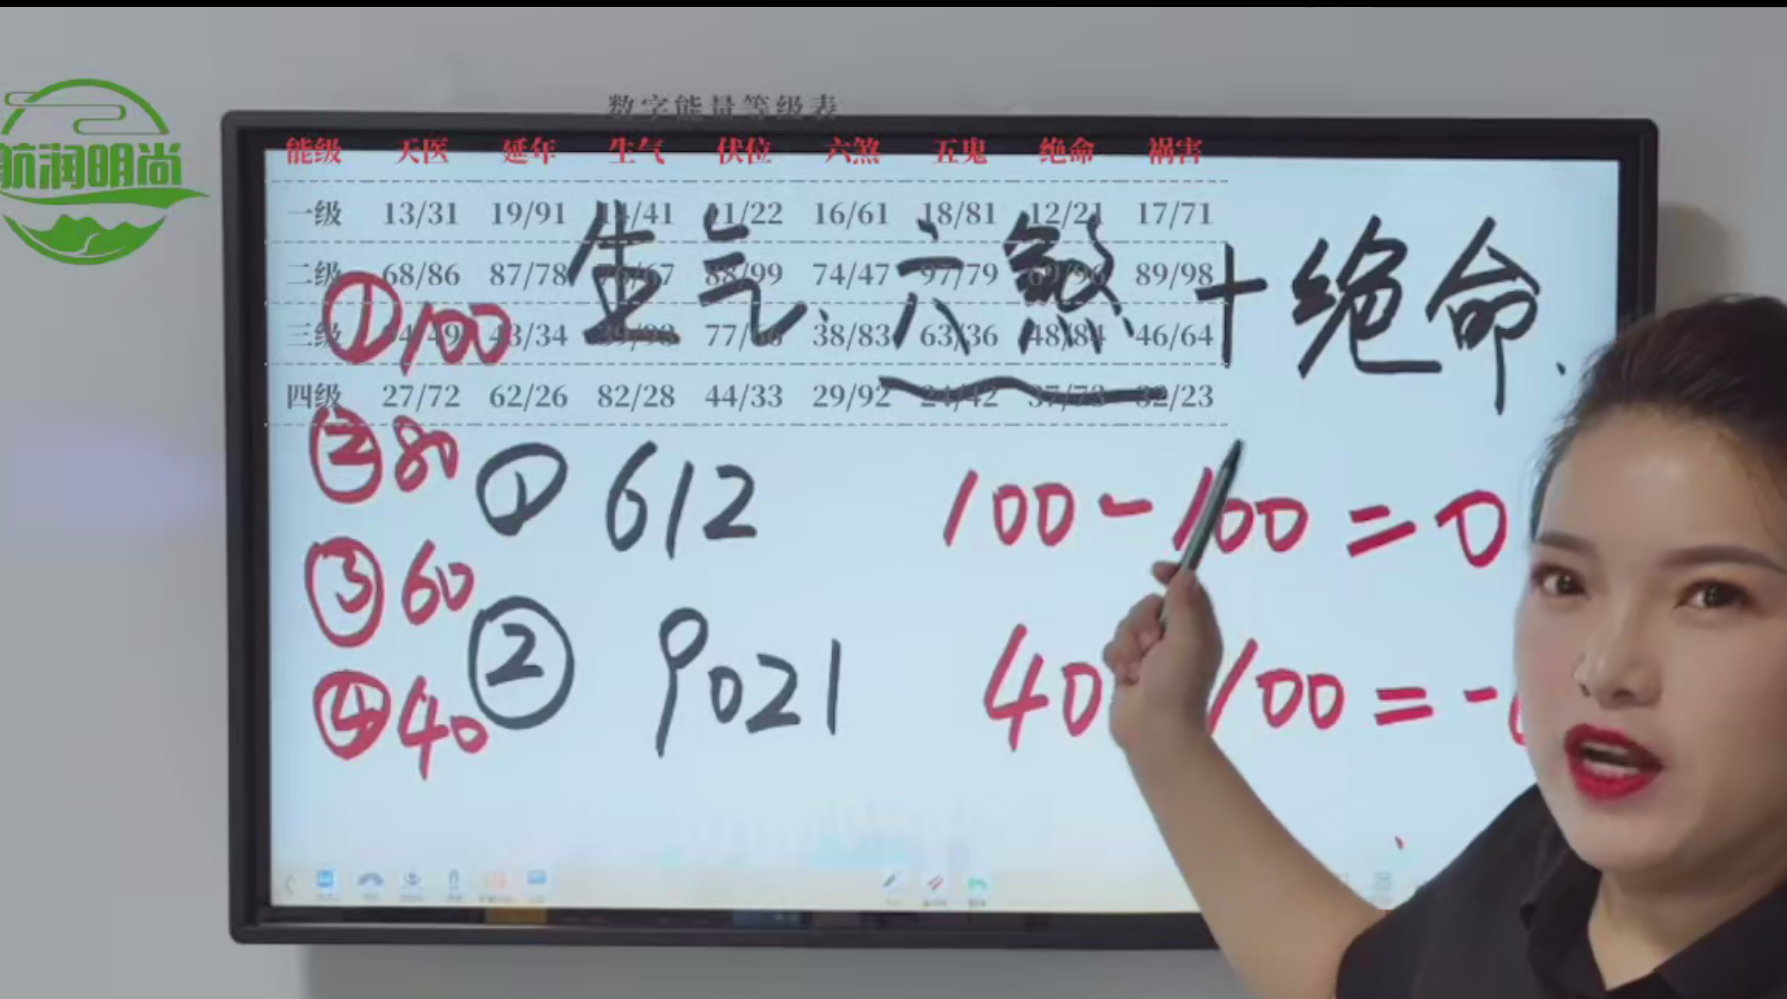 数字能量等级表
航润明尚
能级 天医 延年 生气 伏位 六煞 五鬼 绝命 祸害
一级 13/31 19/91 14/41 11/22 16/61 18/81 12/21 17/71
二级 68/86 87/78 76/67 88/99 74/47 97/79 69/96 89/98
三级 94/49 43/34 39/93 77/66 38/83 63/36 48/84 46/64
四级 27/72 62/26 82/28 44/33 29/92 24/42 37/73 32/23
生气、六煞+绝命.
①100
②80
③60
④40
① 612 100-100=0
② 9021 40 100=-